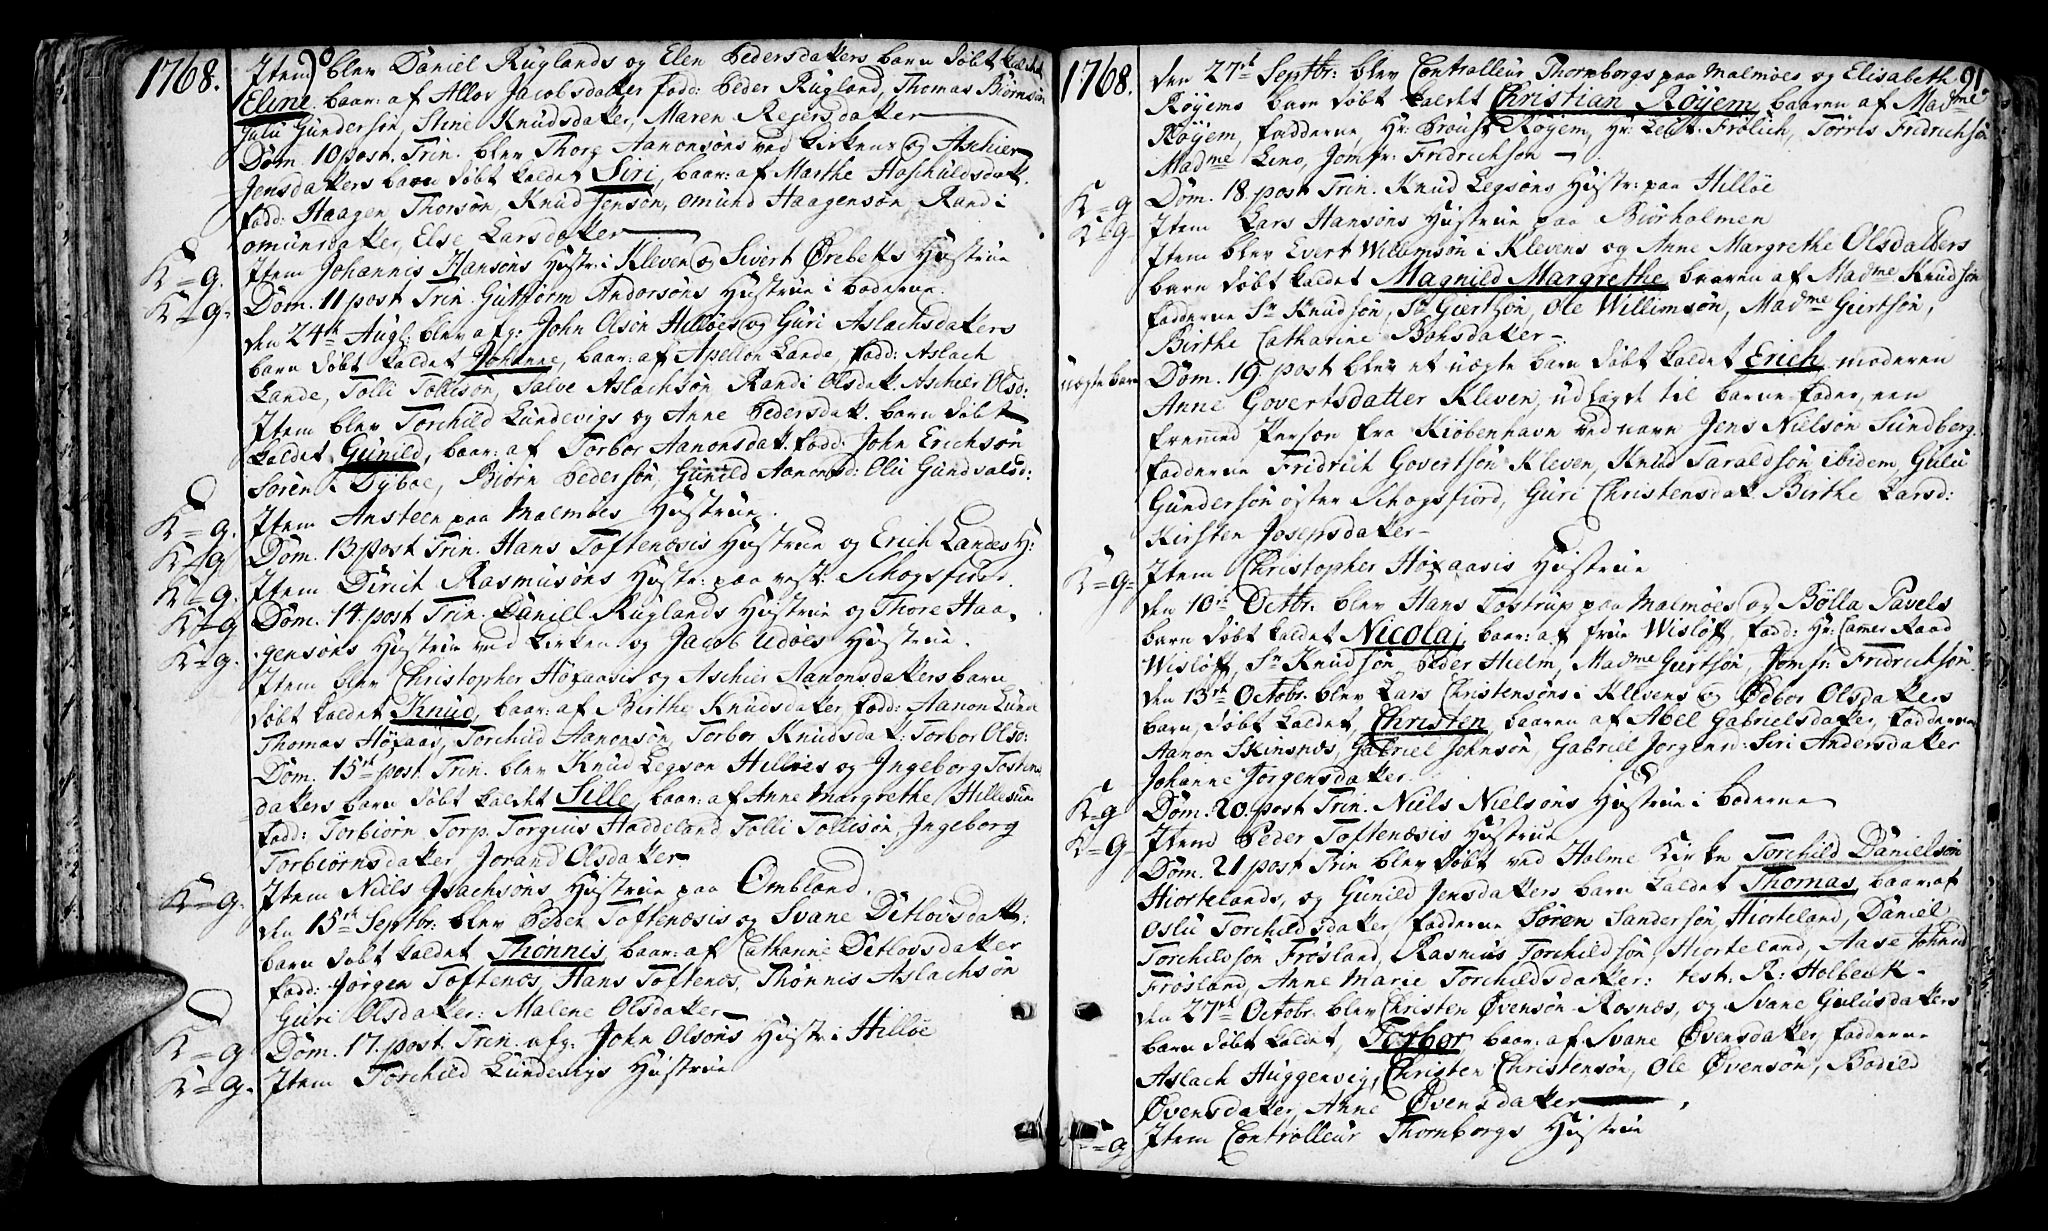 1768.
Item blev Daniel Ruglands og Elen Pedersdatters barn døbt kaldet
Eline, baar: af Allov Jacobsdatter fadd: Peder Rugland, Thomas Biørnsøn
Gulu Gundersøn, Stine Knudsdatter, Maren Rejersdatter
Dom. 10 post. Trin. blev Thorg Aanonsøns ved Kirkens og Aschier
Jensdatters barn døbt kaldet Siri, baar: af Marthe Haschuldsdatt.
fadd: Haagen Thorsøn, Knud Jensøn, Omund Haagensøn Randi
Omunsdatter, Else Larsdatter
K=g. Item Johannis Hansøns Hustr: i Kleven og Sivert Ørebeks Hustrue
K=g. Dom. 11 post Trin. Guthorm Andorsøns Hustrue i boderne.
den 24de Aug: blev afg: John Olsøn Hilløes og Guri Aslachsdatters
barn døbt kaldet Johanne, baar: af Apellon Lande, fadd: Aslach
Lande, Tolli Tollisøn, Salve Aslachsøn Randi Olsdatt. Aschier Olsd:
Item blev Torchild Lundevigs og Anne Pedersdatt. barn døbt
kaldet Gunild, baar: af Torbor Aanonsdatt. fadd: John Erichsøn
Søren Dyboe, Biørn Pedersøn, Gunild Aanonsd: Oli Gundvalsd:
K=g. Item Ansteen paa Malmøes Hustrue.
K=g. Dom. 13 post Trin. Hans Toftenæsis Hustrue og Erich Landes H:
K=g. Item Dirich Rasmusøns Hustr: paa vest: Schogsfiord.
K=g Dom. 14. post Trin. Daniel Ruglands Hustrue og Thore Haa-
K=g. gensøns Hustrue ved Kirken og Jacob Udøes Hustrue.
Item blev Christopher Høyaasis og Aschier Aanonsdatters barn
døbt kaldet Knud, baar: af Birthe Knudsdatter, fadd: Aanon Lunde
Thomas Høyaas, Torchild Aanonsøn, Torbor Knudsdatt: Torbor Olsd:
Dom. 15de post Trin. blev Knud Legsøn Hilløes og Ingeborg Tostens
datters barn døbt kaldet Sille, baar: af Anne Margrethe Hillesun
fadd: Torbiørn Torp, Torgius Haddeland Tolli Tollisøn, Ingeborg
Torbiørnsdatter, Jorand Olsdatter
K=g. Item Niels Isachsøns Hustrue paa Ombland.
den 15de Septbr: blev Peder Toftenæsis og Svane Ditlovsdatt:
barn døbt kaldet Thønnis, baar: af Cathanie Ditlovsdatter
fadd: Jørgen Toftenæs, Hans Toftenæs, Thønnis Aslachsøn
Guri Olsdatter: Malene Olsdatter
K=g Dom. 17. post. Trin. afg: John Olsøns Hustr: i Hilløe
K=g. Item Torchild Lundevigs Hustrue
1768. 91
den 27de Septbr: blev Controlleur Thornborgs paa Malmøes og Elisabeth
Røyems barn døbt kaldet Christian Røyem, baaren af Madme
Røyem, fadderne, Hr: Proust Røyem, Hr: Leut. Frølich, Tørris Fridrichsøn
Madme Lino, Jomfr: Fridrichsøn
K=g Dom. 18. post Trin. Knud Legsøns Hustr: paa Hilløe
K=g Item Lars Hansøns Hustrue paa Biørholmen
Item blev Evert Willumsøn i Klevens og Anne Margrethe Olsdatters
barn døbt kaldet Magnild Margrethe, baaren af Madme Knudsøn
fadderne Sr Knudsøn, Sr Giertsøn, Ole Willumsøn, Madme Giertsøn,
Birthe Catharine Bohsdatter
uægte barn Dom. 19. post blev et uægte barn døbt kaldet Erich, moderen
Anne Govertsdatter Kleven, udlagde til barne fader, een
fremmed Person fra Kiøbenhavn ved navn Jens Nielsøn Sundberg.
fadderne Fridrich Govertsøn Kleven, Knud Taraldsøn ibidem, Gulu
Gundersøn øster Schogsfiord, Guri Christensdatt. Birthe Larsd:
Kirsten Josepsdatter
K=g= Item Christopher Høyaasis Hustrue
den 10de Octbr: blev Hans Tostrup paa Malmøes og Bolla Pavels
barn døbt kaldet Nicolaj, baar: af frue Wisløff, fadd: Hr: Cammer Raad
Wisløff, Sr Knudsøn, Peder Hielm, Madme Giertsøn, Jomfr Fridrichsøn.
den 13de Octobr: blev Lars Christensøns i Klevens og Ødbor Olsdatters
barn, døbt kaldet, Christen, baaren af Abel Gabrielsdatter, fadderne
Aanon Skinsnes, Gabriel Johnsøn, Gabriel Jørgens: Siri Andersdatter
Johanne Jørgensdatter.
K=g Dom. 20. post Trin. Niels Nielsøns Hustrue i boderne
K=g- Item Peder Toftenæsis Hustrue
Dom. 21 post Trin blev døbt ved Holme Kirke Torchild Danielsøn
Hiortelands, og Gunild Jensdatters barn kaldet Thomas, baar: af
Oslu Torchildsdatter, fadderne Søren Sandersøn Hiorteland, Daniel
Torchildsøn Frøsland, Rasmus Torchildsøn Hiorteland, Aase
Frøsland, Anne Marie Torchildsdatter: test: R: Holbeck-
den 27de Octobr: blev Christen Øvensøn Rosnæs, og Svane Gulusdatters
barn døbt kaldet, Torbor, baar: af Svane Øvensdatter, fadderne
Aslach Huggenvig, Christen Christensøn, Ole Øvensøn, Bodild
Øvensdatter, Anne Øvensdatter
=g Item Controlleur Thornborgs Hustrue